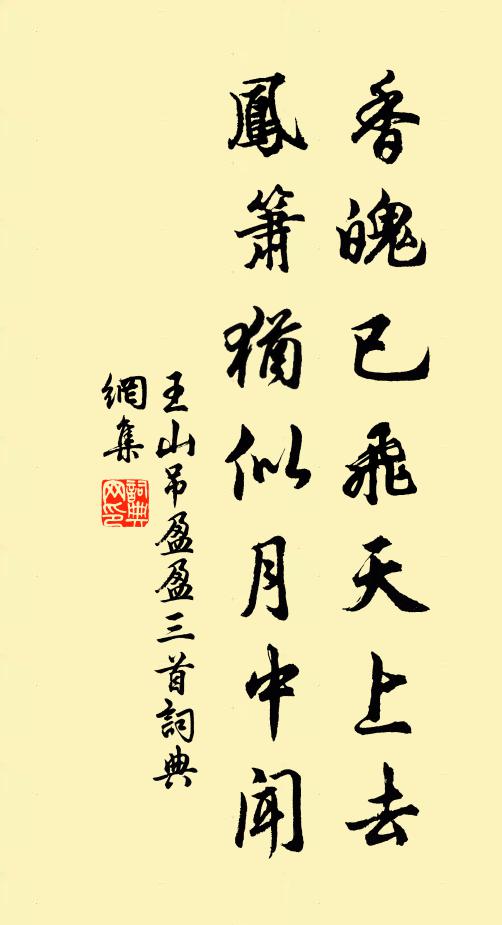 香魄已飛天上去
鳳簫猶似月中聞
王山吊盈盈三首詞典
網集
詞典
网印